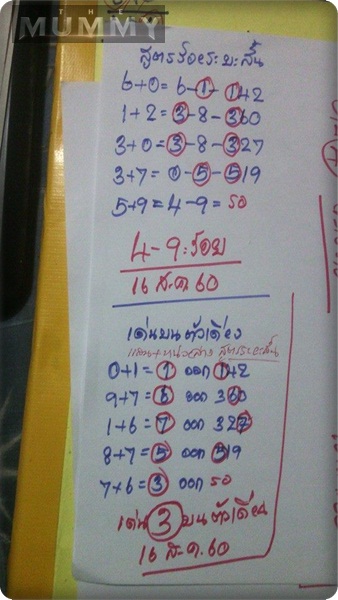 THE
MUMMY
สูตรร้อยระยะสั้น
6+0=6-1-142
1+2=3-8-360
3+0=3-8-327
3+7=0-5-519
5+9=4-9=รอ
4-9=ร้อย
16 ส.ค. 60
เด่นบนตัวเดียว
สูตรระยะสั้น
0+1=1 ออก 142
9+7=6 ออก 360
1+6=7 ออก 327
8+7=5 ออก 519
7+6=3 ออก รอ
เด่น 3 บนตัวเดียว
16 ส.ค. 60